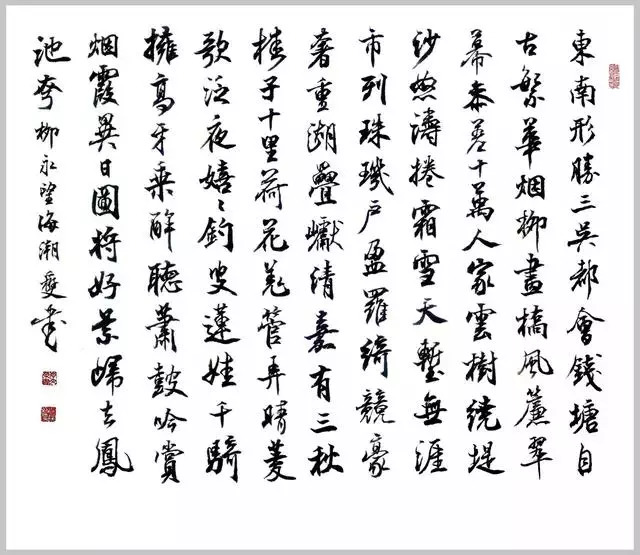 東南形勝三吳都會錢塘自
古繁華烟柳畫橋風簾翠
幕參差十萬人家雲樹繞堤
沙怒濤捲霜雪天塹無涯
市列珠璣戶盈羅綺競豪
奢重湖疊巘清嘉有三秋
桂子十里荷花羌管弄晴菱
歌泛夜嬉〻釣叟蓮娃千騎
擁高牙乘醉聽蕭鼓吟賞
烟霞異日圖將好景歸去鳳
池夸 柳永望海潮 書